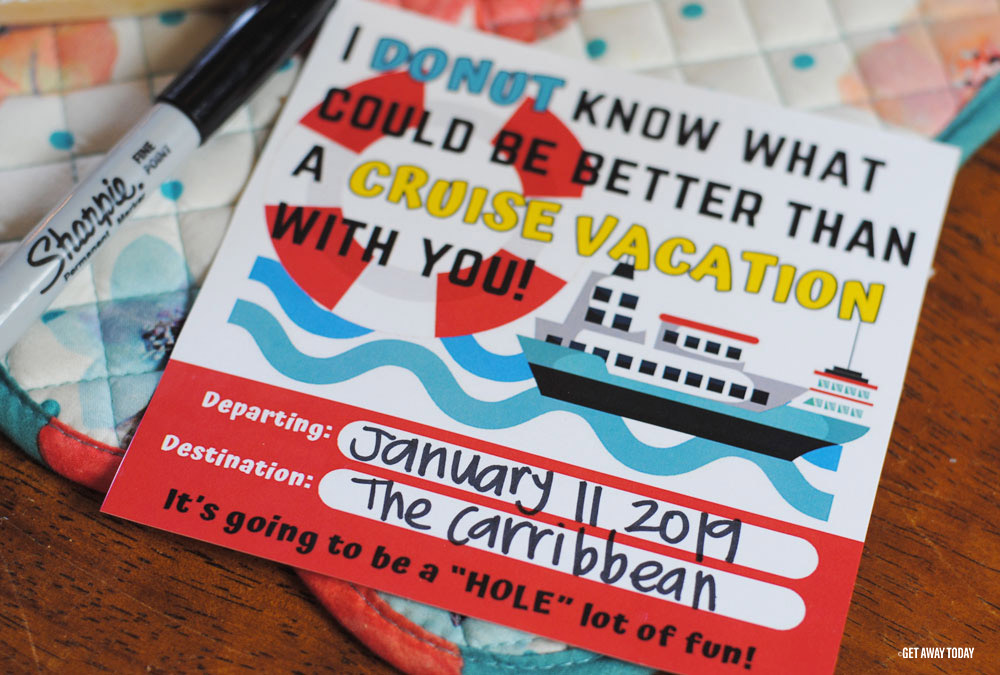 I DONUT KNOW WHAT
COULD BE BETTER THAN
A CRUISE VACATION
WITH YOU!
Departing: January 11, 2019
Destination: The Carribbean
It's going to be a "HOLE" lot of fun!
Sharpie.
FINE POINT
Permanent Marker
©GET AWAY TODAY